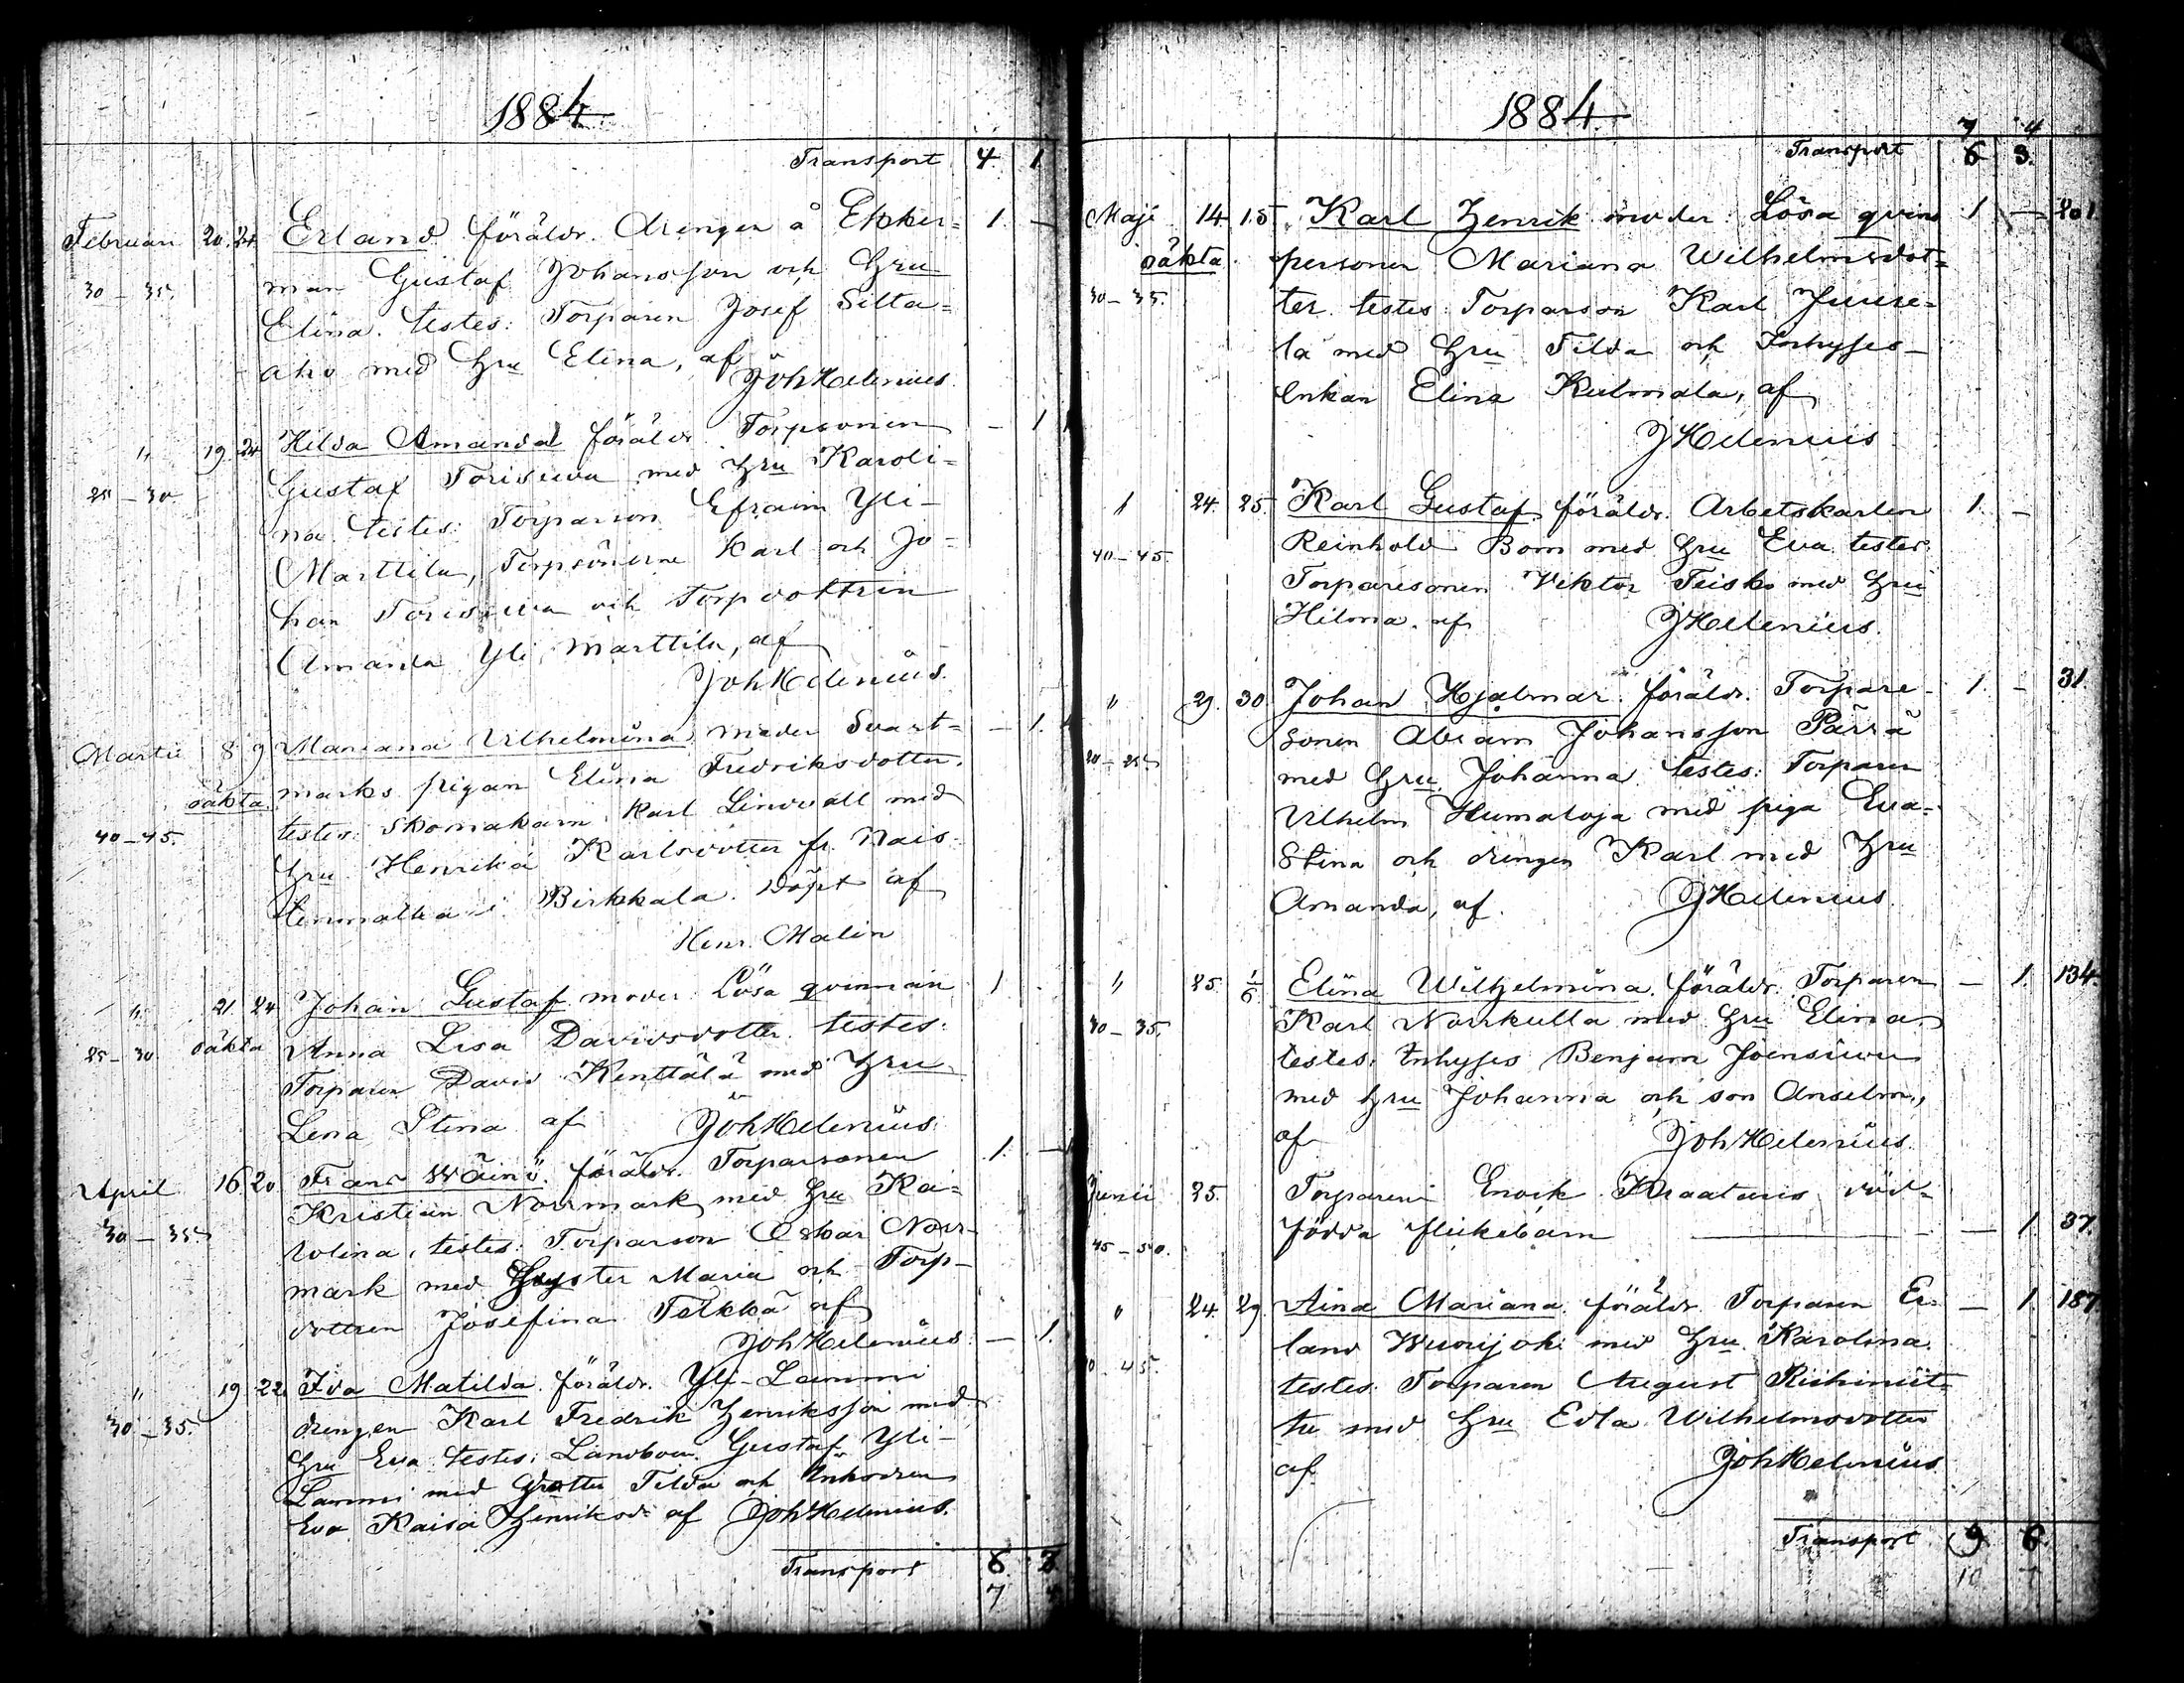 1884
Transport 4 1
Februari 20. 24. Erland föräldr. drengen å Ekker= 1. —
30 – 35. man Gustaf Johansson och Hru
Elina. testes: Torparen Josef Silta=
aho med Hru Elina, af
Joh Helenius.
" 19. 24 Hilda Amanda föräldr. Torpsonen — 1
25 – 30 Gustaf Torisewa med Hru Karoli=
na testes: Torparson Efraim Yli-
Marttila, Torpsönerne Karl och Jo=
han Torisewa och Torpdottren
Amanda Yli Marttila, af
Joh Helenius.
Martii 8 9 Mariana Vilhelmina moder Svart= — 1.
oäkta marks pigan Elina Fredriksdotter.
40 – 45. testes: Skomakarn Karl Lindvall med
Hru Henrika Karlsdotter fr. Nais-
tenmatka i Birkkala. döpt af
Henr. Malin
" 21 24 Johan Gustaf moder: Lösa qvinnan 1
25 – 30. oäkta Anna Lisa Davidsdotter. testes:
Torparen David Kenttälä med Hru
Lena Stina af Joh Helenius.
April 16 20 Frans Wäinö. föräldr. Torparsonen 1. —
Kristian Norrmark med Hru Ka=
30 – 35 rolina, testes: Torparson Oskar Norr-
mark med Syster Maria och Torp-
dottren Josefina Telkkä af
Joh Helenius. — 1.
" 19 22. Ida Matilda. föräldr. Yli-Lammi
30 – 35. drengen Karl Fredrik Henriksson med
Hru Eva testes: Landbon Gustaf Yli-
Lammi med dotter Tilda och
Eva Kaisa Henriksd. af Joh Helenius.
Transport 6 3
7
1884
7 4
Transport 6 3.
Maji 14. 15. Karl Henrik moder: Lösa qvins 1 — 201.
oäkta. personen Mariana Wilhelmsdot=
30 – 35. ter. testes: Torparson Karl Juuse=
la med Hru Tilda och Inhyses-
Enkan Elina Kulmala, af
J Helenius
" 24. 25. Karl Gustaf. föräldr. Arbetskarlen 1. —
40 – 45. Reinhold Bom med Hru Eva. testes:
Torparesonen Viktor Teisko med Hru
Hilma. af J Helenius.
" 29. 30 Johan Hjalmar. föräldr. Torpare- 1. — 31.
sonen Abram Johansson Pärrä
20 – 25 med Hru Johanna testes: Torparen
Vilhelm Humaloja med piga Eva-
Stina och drengen Karl med Hru
Amanda, af. J Helenius.
" 25. 1/6 Elina Wilhelmina. föräldr. Torparen — 1. 134.
30 – 35. Karl Norrkulla med Hru Elina.
testes: Inhyses Benjam Joensuu
med Hru Johanna och son Anselm,
af Joh Helenius.
Junii 25. Torparen Enock Kraataris död-
45 – 50. födda flickebarn — 1. 37.
" 24. 29. Aina Mariana. föräldr. Torparen Er- — 1. 187
land Wuorijoki med Hru Karolina.
45. testes. Torparen August Riihiniit-
tu med Hru Edla Wilhelmsdotter
af Joh Helenius
Transport 9 6.
10